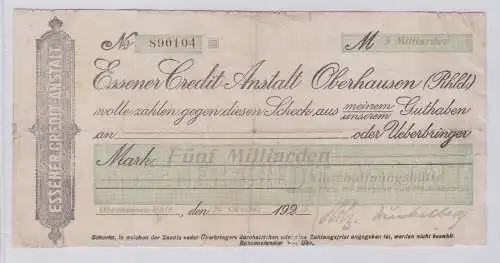 No 890104 M 5 Milliarden
ESSENER CREDIT-ANSTALT
Essener Credit-Anstalt Oberhausen (Rhld)
wolle zahlen gegen diesen Scheck aus meinem
unserem Guthaben
an oder Ueberbringer
Mark Fünf Milliarden
Gutehoffnungshütte
Oberhausen-Rhld. , den Oktober 192
Schecks, in welchen der Zusatz „oder Überbringer“ durchstrichen oder eine Zahlungsfrist angegeben ist, werden nicht bezahlt.